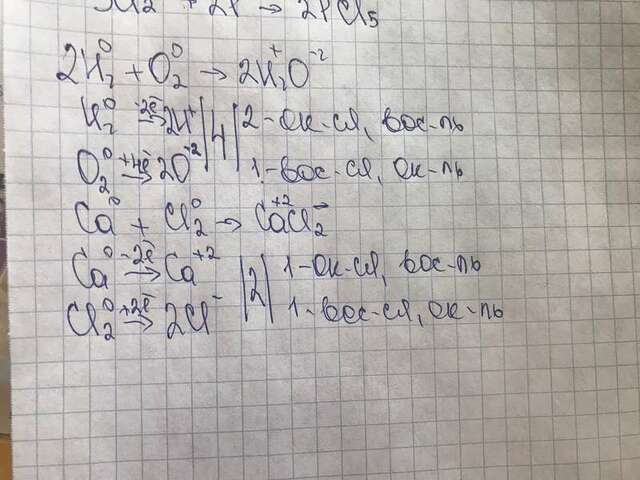 → 2PCl₅
2H₂⁰ + O₂⁰ → 2H₂⁺O⁻²
H₂⁰ -2ē→ 2H⁺ | 4 | 2 - ок-сл, вос-ль
O₂⁰ +4ē→ 2O⁻² | 1 - вос-сл, ок-ль
Ca⁰ + Cl₂⁰ → Ca⁺²Cl₂⁻
Ca⁰ -2ē→ Ca⁺² | 2 | 1 - ок-сл, вос-ль
Cl₂⁰ +2ē→ 2Cl⁻ | 1 - вос-сл, ок-ль